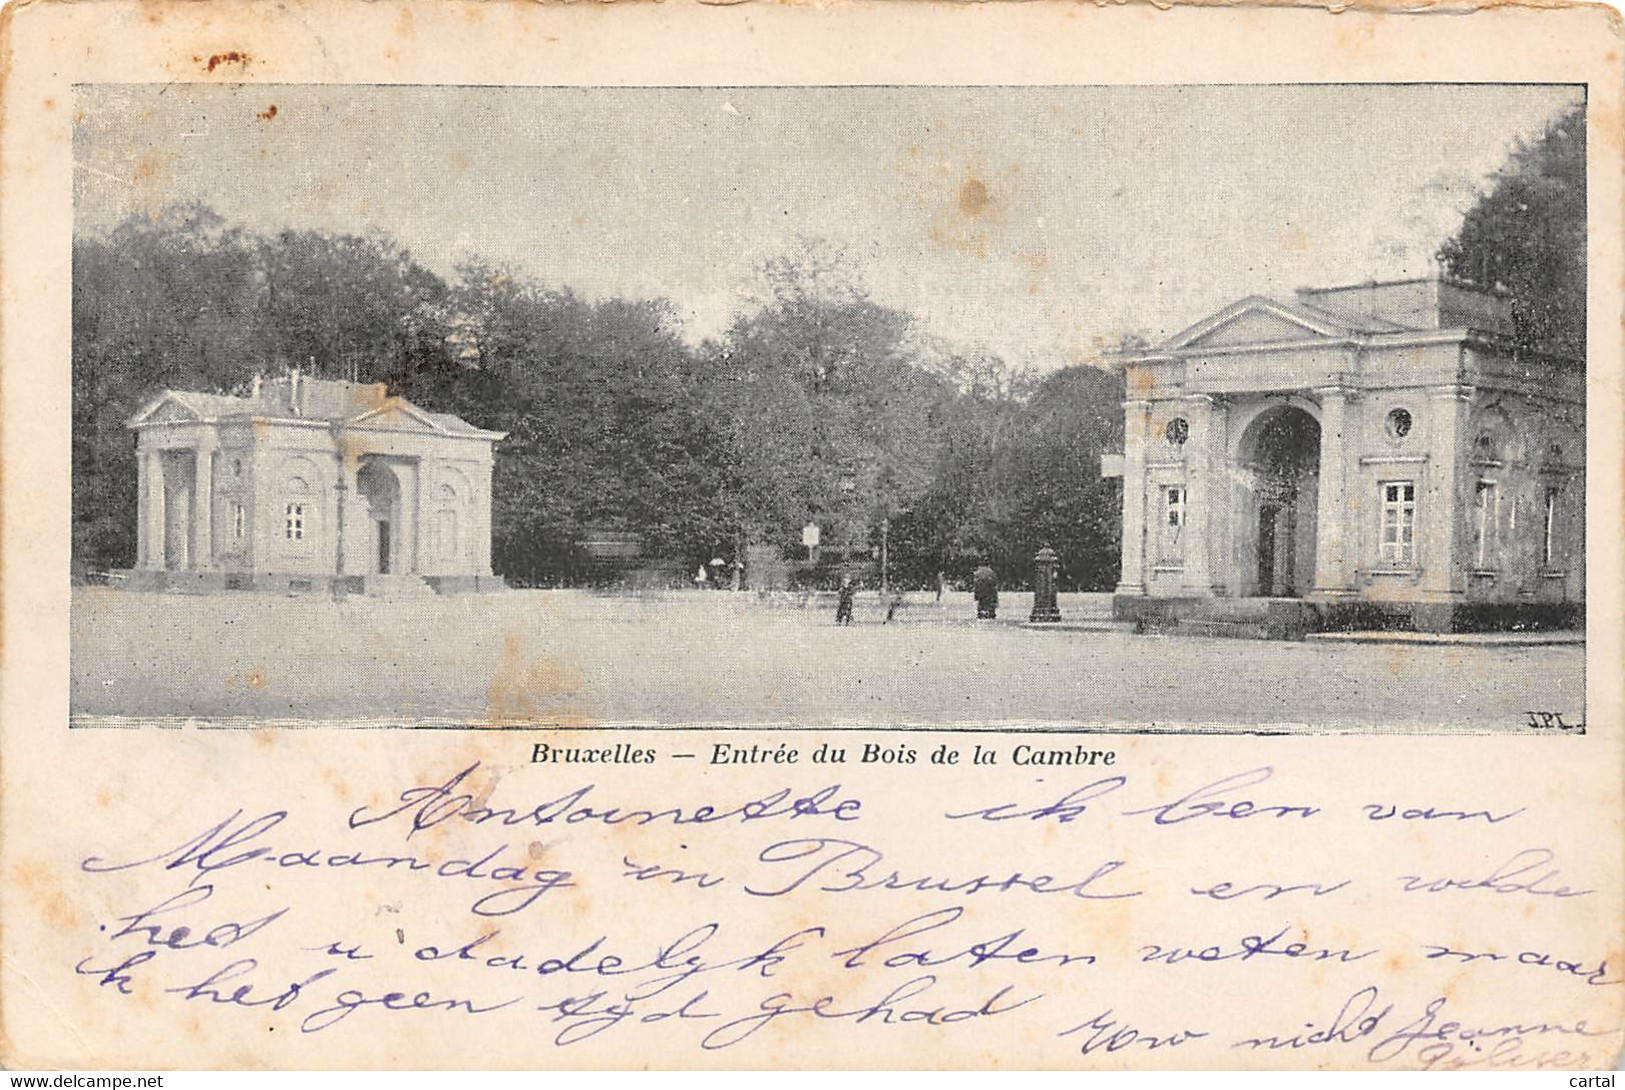 J.P.L.
Bruxelles — Entrée du Bois de la Cambre
Antoinette ik ben van
Maandag in Brussel en wilde
het u dadelyk laten weten maar
k heb geen tyd gehad
Uw nicht Jeanne
delcampe.net
cartal